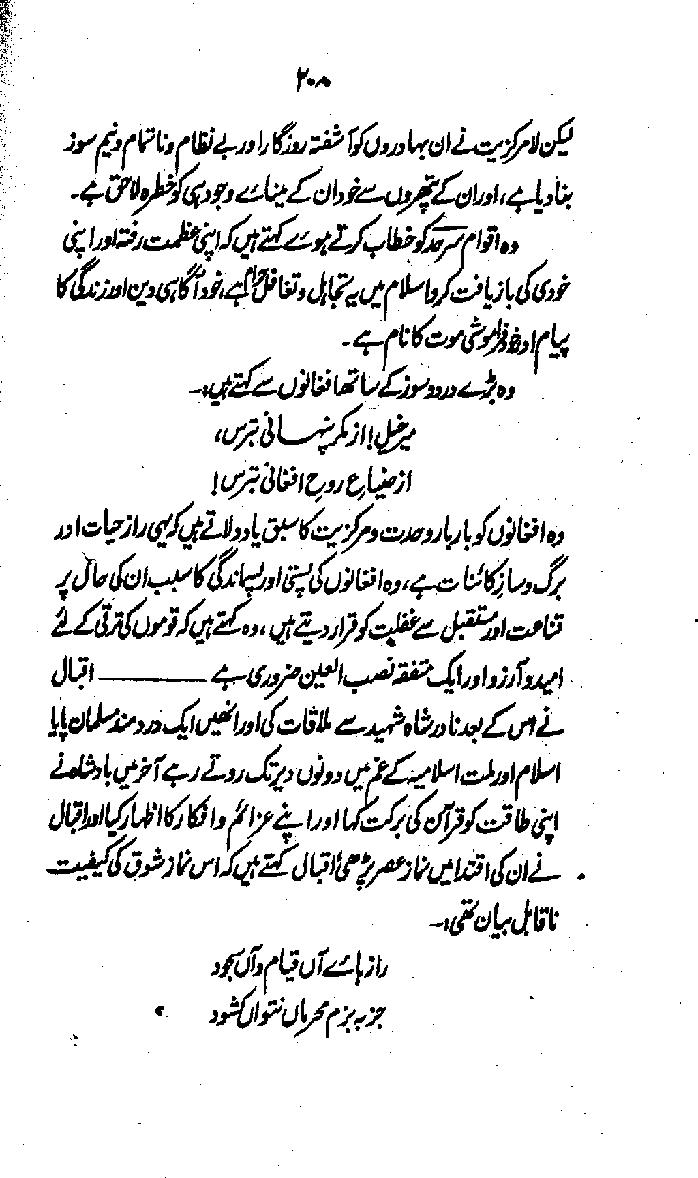 ۲۰۸
لیکن لامرکزیت نے ان بہادروں کو آشفتہ روزگار اور بے نظام و ناتمام و نیم سوز
بنا دیا ہے، اور ان کے پتھروں سے خود ان کے مینائے وجود ہی کو خطرہ لاحق ہے۔
وہ اقوام سرحد کو خطاب کرتے ہوئے کہتے ہیں کہ اپنی عظمت رفتہ اور اپنی
خودی کی بازیافت کرو اسلام میں یہ تجاہل و تغافل حرام ہے، خود آگاہی دین اور زندگی کا
پیام اور خود فراموشی موت کا نام ہے۔
وہ بڑے درد و سوز کے ساتھ افغانوں سے کہتے ہیں:۔
میر خیل! از مکر پنہانی بترس،
از ضیاع روح افغانی بترس!
وہ افغانوں کو بار بار وحدت و مرکزیت کا سبق یاد دلاتے ہیں کہ یہی راز حیات اور
برگ و ساز کائنات ہے، وہ افغانوں کی پستی اور پسماندگی کا سبب ان کی حال پر
قناعت اور مستقبل سے غفلت کو قرار دیتے ہیں، وہ کہتے ہیں کہ قوموں کی ترقی کے لئے
امید و آرزو اور ایک متفقہ نصب العین ضروری ہے ——— اقبال
نے اس کے بعد نادر شاہ شہید سے ملاقات کی اور انھیں ایک دردمند مسلمان پایا
اسلام اور ملت اسلامیہ کے غم میں دونوں دیر تک روتے رہے آخر میں بادشاہ نے
اپنی طاقت کو قرآن کی برکت کہا اور اپنے عزائم و افکار کا اظہار کیا اور اقبال
نے ان کی اقتدا میں نماز عصر پڑھی، اقبال کہتے ہیں کہ اس نماز شوق کی کیفیت
ناقابل بیان تھی:۔
راز ہائے آں قیام و آں سجود
جز بہ بزم محرماں نتواں کشود